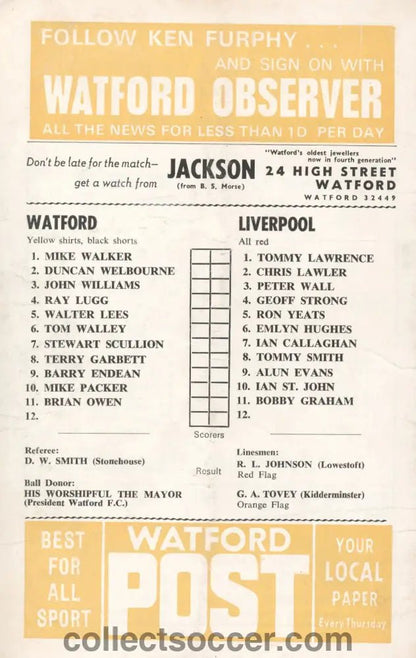 FOLLOW KEN FURPHY . . .
AND SIGN ON WITH
WATFORD OBSERVER
ALL THE NEWS FOR LESS THAN 1D PER DAY
Don't be late for the match—
get a watch from
JACKSON
(from B. S. Morse)
"Watford's oldest jewellers
now in fourth generation"
24 HIGH STREET
WATFORD
WATFORD 32449
WATFORD
Yellow shirts, black shorts
1. MIKE WALKER
2. DUNCAN WELBOURNE
3. JOHN WILLIAMS
4. RAY LUGG
5. WALTER LEES
6. TOM WALLEY
7. STEWART SCULLION
8. TERRY GARBETT
9. BARRY ENDEAN
10. MIKE PACKER
11. BRIAN OWEN
12.
LIVERPOOL
All red
1. TOMMY LAWRENCE
2. CHRIS LAWLER
3. PETER WALL
4. GEOFF STRONG
5. RON YEATS
6. EMLYN HUGHES
7. IAN CALLAGHAN
8. TOMMY SMITH
9. ALUN EVANS
10. IAN ST. JOHN
11. BOBBY GRAHAM
12.
Scorers
Result
Referee:
D. W. SMITH (Stonehouse)
Ball Donor:
HIS WORSHIPFUL THE MAYOR
(President Watford F.C.)
Linesmen:
R. L. JOHNSON (Lowestoft)
Red Flag
G. A. TOVEY (Kidderminster)
Orange Flag
BEST
FOR
ALL
SPORT
WATFORD
POST
YOUR
LOCAL
PAPER
Every Thursday
collectsoccer.com